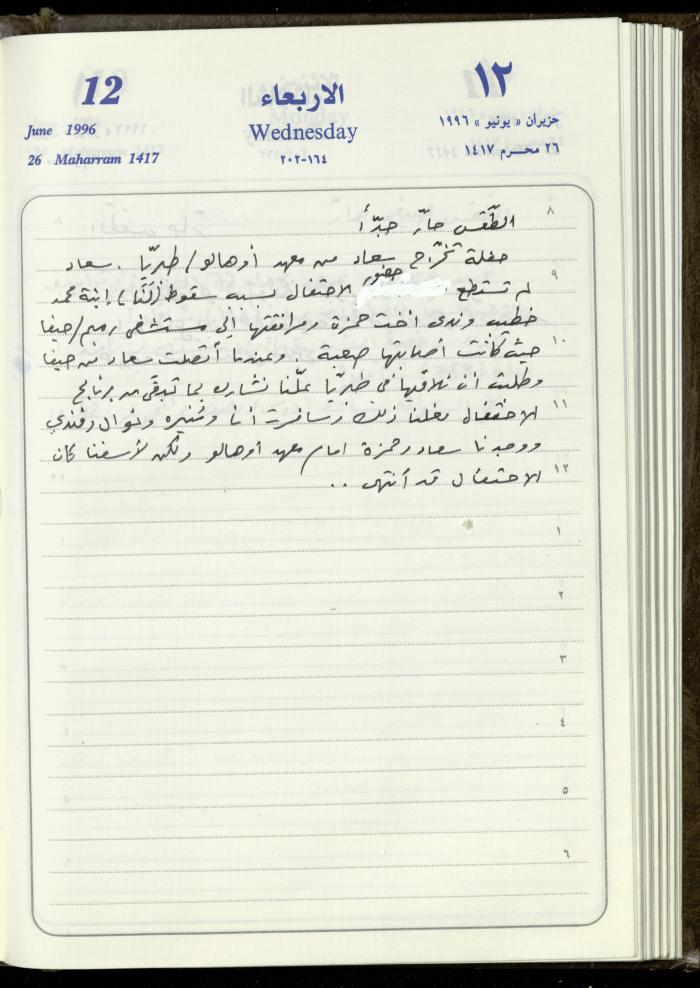 12
June 1996
26 Maharram 1417
الاربعاء
Wednesday
٢٠٢-١٦٤
١٢
حزيران « يونيو » ١٩٩٦
٢٦ محرم ١٤١٧
٨
الطّقس حارّ جدّاً
حفلة تخرّج سعاد من معهد أوهالو/طبريّا . سعاد
٩
لم تستطع حضور الاحتفال بسبب سقوط (لَنَا) إبنة محمد
خطيب وندى اخت حمزة ومرافقتها إلى مستشفى رمبم/حيفا
١٠
حيث كانت أصابتها صعبة .. وعندما أتصلت سعاد من حيفا
وطلبت ان نلاقيها في طبريّا علّنا نشارك بما تبقّى من برنامج
١١
الاحتفال فعلنا ذلك وسافرت أنا ومنيره ونوال وفندي
ووجدنا سعاد وحمزة امام معهد أوهالو ولكن لأسفنا كان
١٢
الاحتفال قد أنتهى ..
١
٢
٣
٤
٥
٦